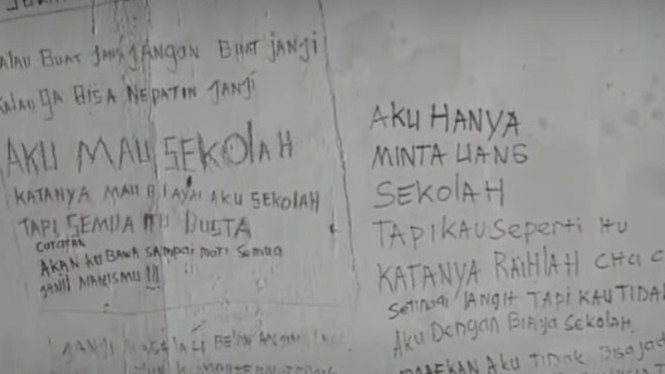 JANJI JANGAN BUAT JANJI
KALAU GA BISA NEPATIN JANJI
AKU MAU SEKOLAH
KATANYA MAU BIAYAI AKU SEKOLAH
TAPI SEMUA ITU DUSTA
CATATAN
AKAN KU BAWA SAMPAI MATI SEMUA
JANJI MANISMU !!!
JANJI
AKU HANYA
MINTA UANG
SEKOLAH
TAPI KAU SEPERTI ITU
KATANYA RAIHLAH CITA C
SETINGGI LANGIT TAPI KAU TIDA
AKU DENGAN BIAYA SEKOLAH
AKU TIDAK BISA JAD